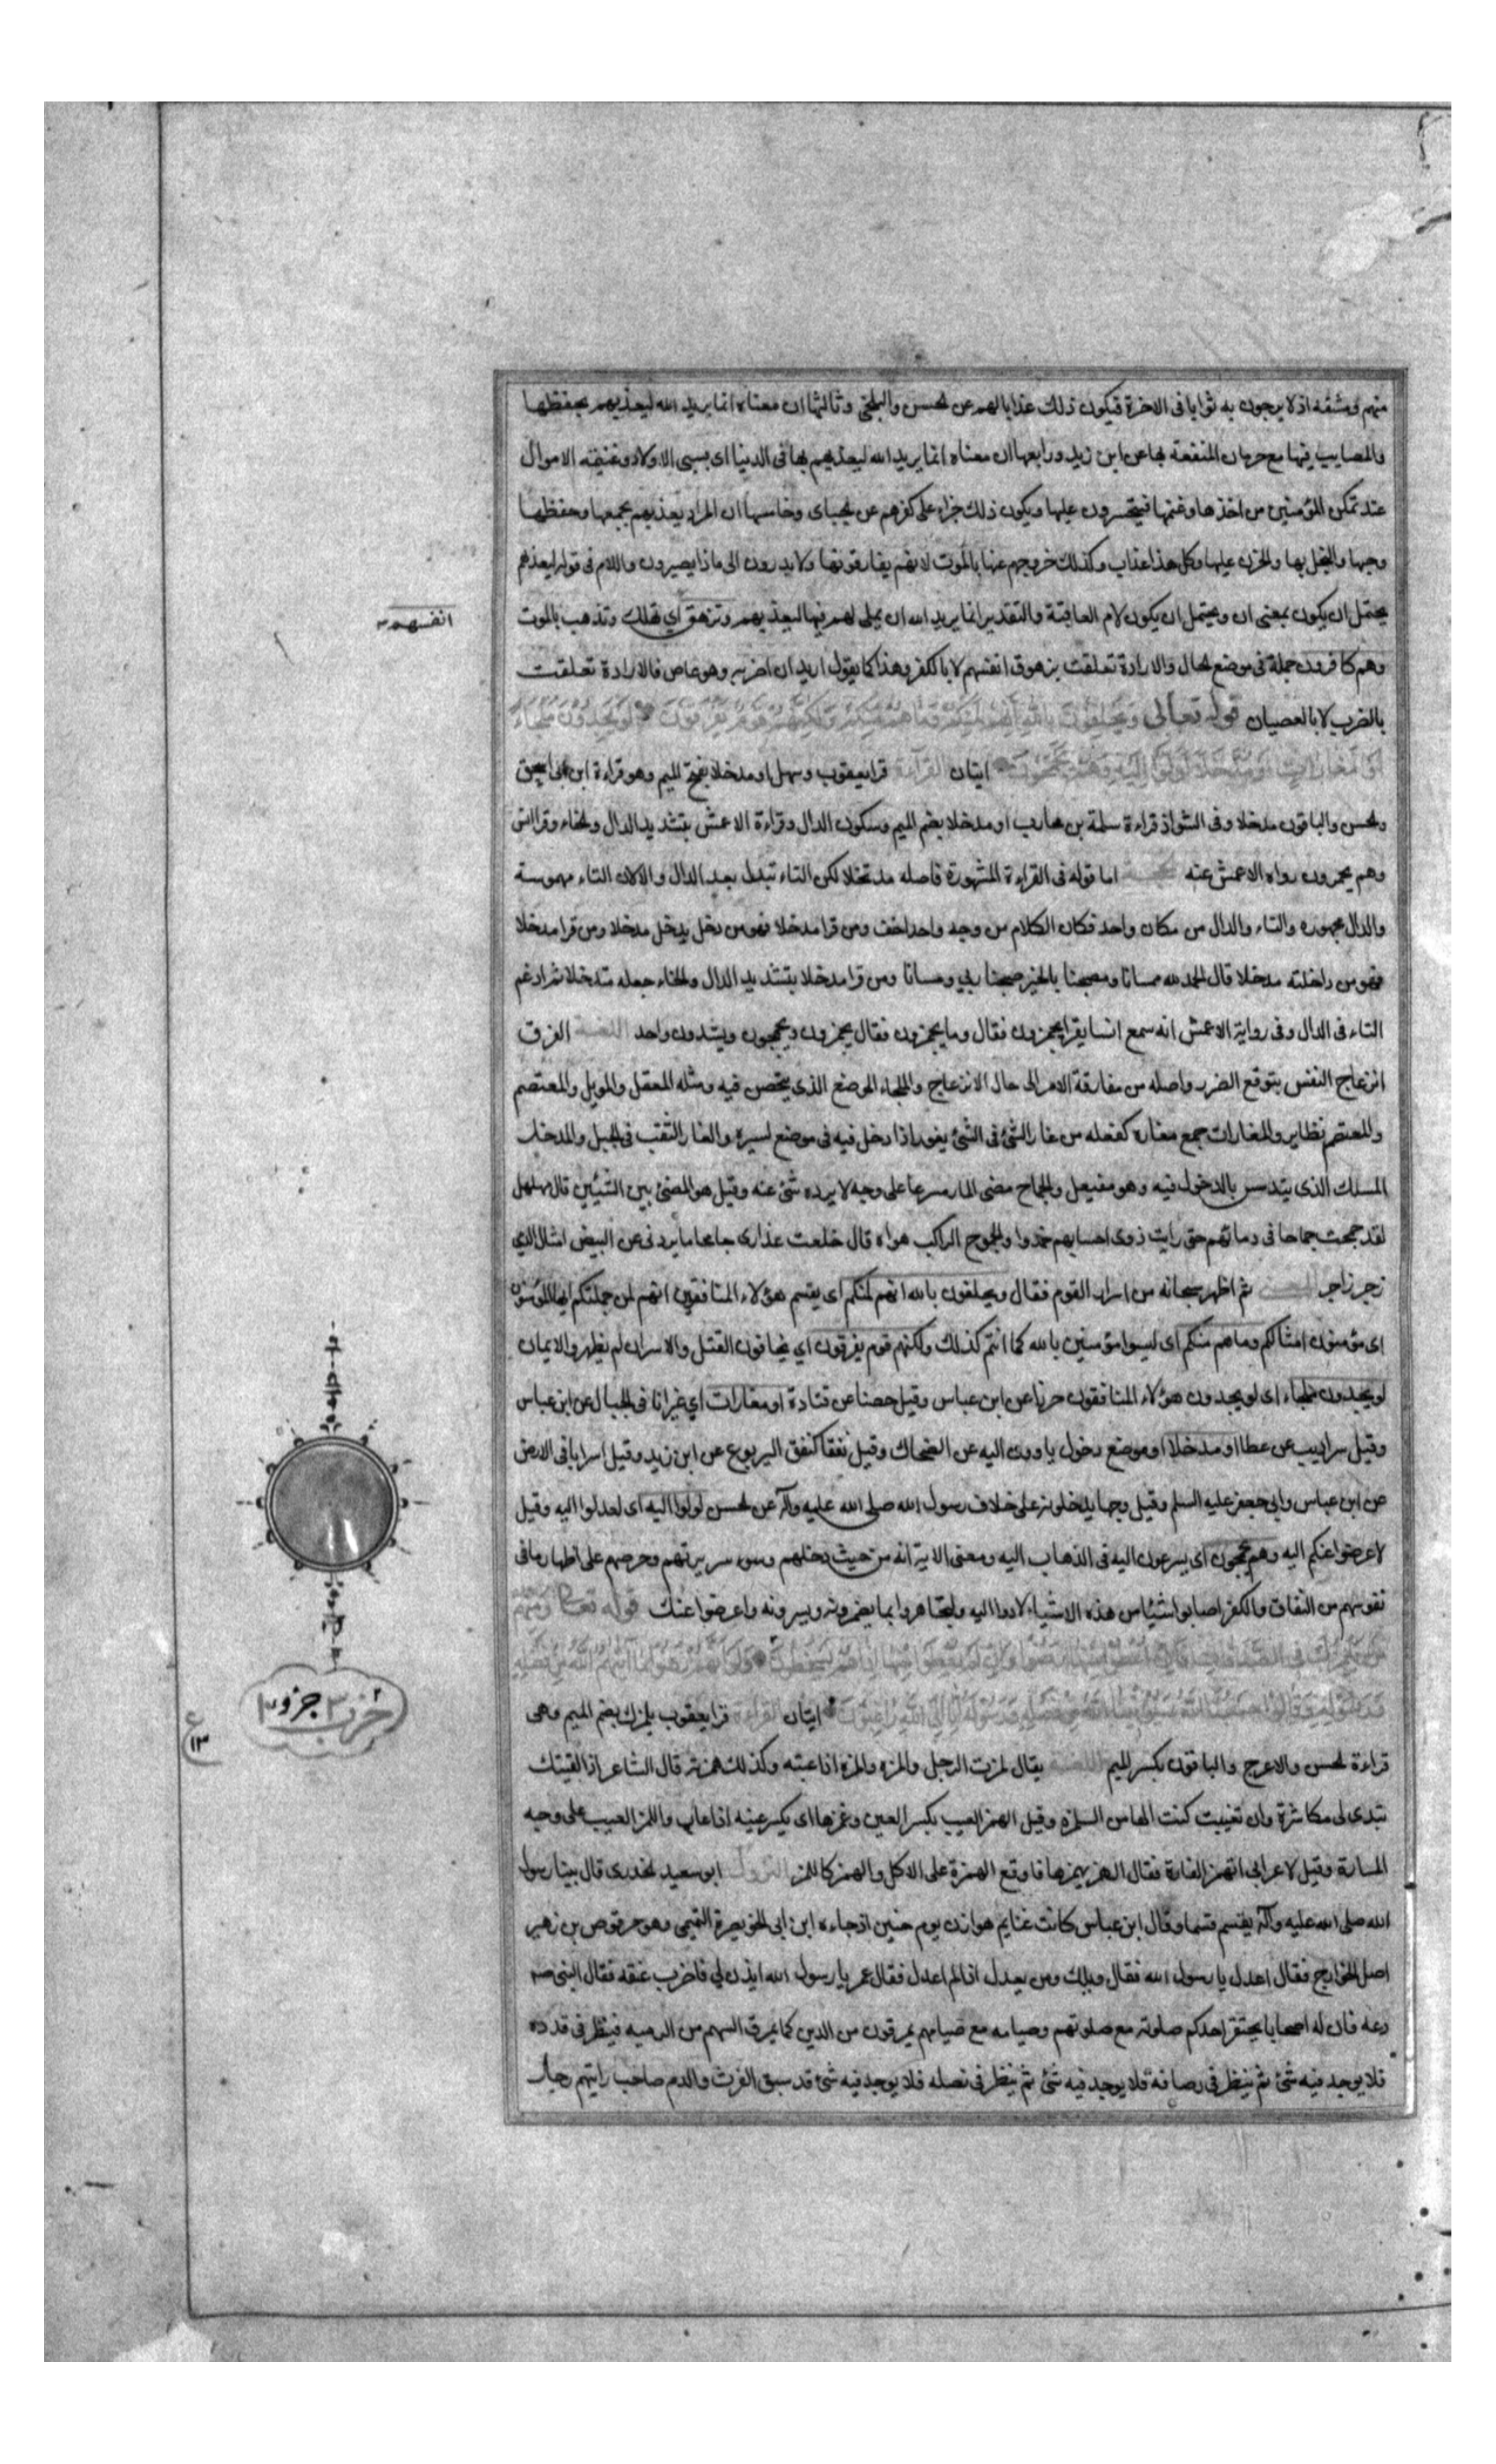 منهم ومشقة اذ لا يرجون به ثوابا فى الاخرة فيكون ذلك عذابا لهم عن الحسن والبلخى وثالثها ان معناه انما يريد الله ليعذبهم بحفظها
والمصايب فيها مع حرمان المنفعة بها عن ابن زيد ورابعها ان معناه انما يريد الله ليعذبهم بها فى الدنيا اى بسبى الاولاد وغنيمة الاموال
عند تمكن المؤمنين من اخذها وغنمها فيتحسرون عليها ويكون ذلك جزاء على كفرهم عن الجبائى وخامسها ان المراد يعذبهم بجمعها وحفظها
وحبها والبخل بها والحزن عليها وكل هذا عذاب وكذلك خروجهم عنها بالموت لانهم يفارقونها ولا يدرون الى ماذا يصيرون واللام فى قوله ليعذبهم
يحتمل ان يكون بمعنى ان ويحتمل ان يكون لام العاقبة والتقدير انما يريد الله ان يملى لهم فيها ليعذبهم وتزهق اي تهلك وتذهب بالموت
انفسهم
وهم كافرون جملة فى موضع الحال والارادة تعلقت بزهوق انفسهم لا بالكفر وهذا كما يقول اريد ان اضربه وهو عاص فالارادة تعلقت
بالضرب لا بالعصيان قوله تعالى ويحلفون بالله انهم لمنكم وما هم منكم ولكنهم قوم يفرقون لو يجدون ملجاء
او مغارات او مدخلا لولوا اليه وهم يجمحون ايتان القرآءة قرا يعقوب وسهل او مدخلا بفتح الميم وهو قراءة ابن ابى اسحق
والحسن والباقون مدخلا وفى الشواذ قراءة سلمة بن محارب او مدخلا بضم الميم وسكون الدال وقراءة الاعمش بتشديد الدال والخاء وقرا انس
وهم يجمزون رواه الاعمش عنه الحجة اما قوله فى القراءة المشهورة فاصله مدتخلا لكن التاء تبدل بعد الدال دالا لان التاء مهموسة
والدال مجهوره والتاء والدال من مكان واحد فكان الكلام من وجه واحد اخف ومن قرا مدخلا فهو من دخل يدخل مدخلا ومن قرا مدخلا
فهو من داخلته مدخلا قال الحمد لله ممسانا ومصبحنا بالخير صبحنا ربي ومسانا ومن قرا مدخلا بتشديد الدال والخاء جعله متدخلا ثم ادغم
التاء فى الدال وفى رواية الاعمش انه سمع انسا يقرا يجمزون فقال وما يجمزون فقال يجمزون ويجمحون ويشدون واحد اللغة الفرق
انزعاج النفس بتوقع الضرر واصله من مفارقة الامر الى حال الانزعاج والملجاء الموضع الذى يتحصن فيه ومثله المعقل والمويل والمعتصم
والمعتصر نظاير والمغارات جمع مغارة كفعله من غار الشئ فى الشئ يغور اذا دخل فيه فى موضع لسيره والغار الثقب فى الجبل والمدخل
المسلك الذى يتدسس بالدخول فيه وهو مفتعل والجماح مضى المار مسرعا على وجه لا يرده شئ عنه وقيل هو المضى بين الشيئين قال مهلهل
لقد جمحت جماحا فى دمائهم حتى رايت ذوى احسابهم خمدوا والجموح الراكب هواه قال خلعت عذارى جامحا ما يردنى عن البيض امثال الدمي
زجر زاجر المعنى ثم اظهر سبحانه سر اسرار القوم فقال ويحلفون بالله انهم لمنكم اى يقسم هؤلاء المنافقون انهم لمن جملتكم ايها المؤمنون
اى مؤمنون امثالكم وما هم منكم اى ليسوا مؤمنين بالله كما انتم كذلك ولكنهم قوم يفرقون اي يخافون القتل والاسر ان لم يظهروا الايمان
لو يجدون ملجاء اى لو يجدون هؤلاء المنافقون حرزا عن ابن عباس وقيل حصنا عن قتادة او مغارات اي غيرانا فى الجبال عن ابن عباس
وقيل سراديب عن عطا او مدخلا او موضع دخول ياوون اليه عن الضحاك وقيل نفقا كنفق اليربوع عن ابن زيد وقيل اسرابا فى الارض
عن ابن عباس وابي جعفر عليه السلم وقيل وجها يدخلونه على خلاف رسول الله صلى الله عليه وآله عن الحسن لولوا اليه اى لعدلوا اليه وقيل
لاعرضوا عنكم اليه وهم يجمحون اى يسرعون اليه فى الذهاب اليه ومعنى الاية انه من حيث دخلهم وسوء سريرتهم وحرصهم على اظهار ما فى
نفوسهم من النفاق والكفر اصابوا شيئا من هذه الاشياء لاووا اليه وليجاهروا بما يضمرونه ويسرونه واعرضوا عنك قوله تعالى ومنهم
من يلمزك فى الصدقات فان اعطوا منها رضوا وان لم يعطوا منها اذا هم يسخطون ولو انهم رضوا ما آتيهم الله من فضله
ورسوله وقالوا حسبنا الله سيؤتينا الله من فضله ورسوله انا الى الله راغبون ايتان القراءة قرا يعقوب يلمزك بضم الميم وهى
قراءة الحسن والاعرج والباقون بكسر الميم اللغة يقال لمزت الرجل والمزه والمزه اذا عبته وكذلك همزته قال الشاعر اذا لقيتك
تبدى لى مكاشرة وان تغيبت كنت الهامز اللمزه وقيل الهمز العيب بكسر العين وغمزها اى يكسر عينه اذا عاب واللمز العيب على وجه
المسارة وقيل لاعرابى اتهمز الفارة فقال الهر يهمزها فاوقع الهمزة على الاكل والهمز كاللمز النزول ابو سعيد الخدرى قال بينا رسول
الله صلى الله عليه وآله يقسم قسما وقال ابن عباس كانت غنايم هوازن يوم حنين اذ جاءه ابن ابى الخويصرة التميمى وهو حرقوص بن زهير
اصل الخوارج فقال اعدل يا رسول الله فقال ويلك ومن يعدل اذا لم اعدل فقال عمر يا رسول الله ايذن لي فاضرب عنقه فقال النبى صه
دعه فان له اصحابا يحتقر احدكم صلوته مع صلوتهم وصيامه مع صيامهم يمرقون من الدين كما يمرق السهم من الرميه فينظر فى قذذه
فلا يوجد فيه شئ ثم ينظر فى رصافه فلا يوجد فيه شئ ثم ينظر فى نصله فلا يوجد فيه شئ قد سبق الفرث والدم صاحب رايتهم رجل
حزب ٣ جزو ١٠
ع
١٣